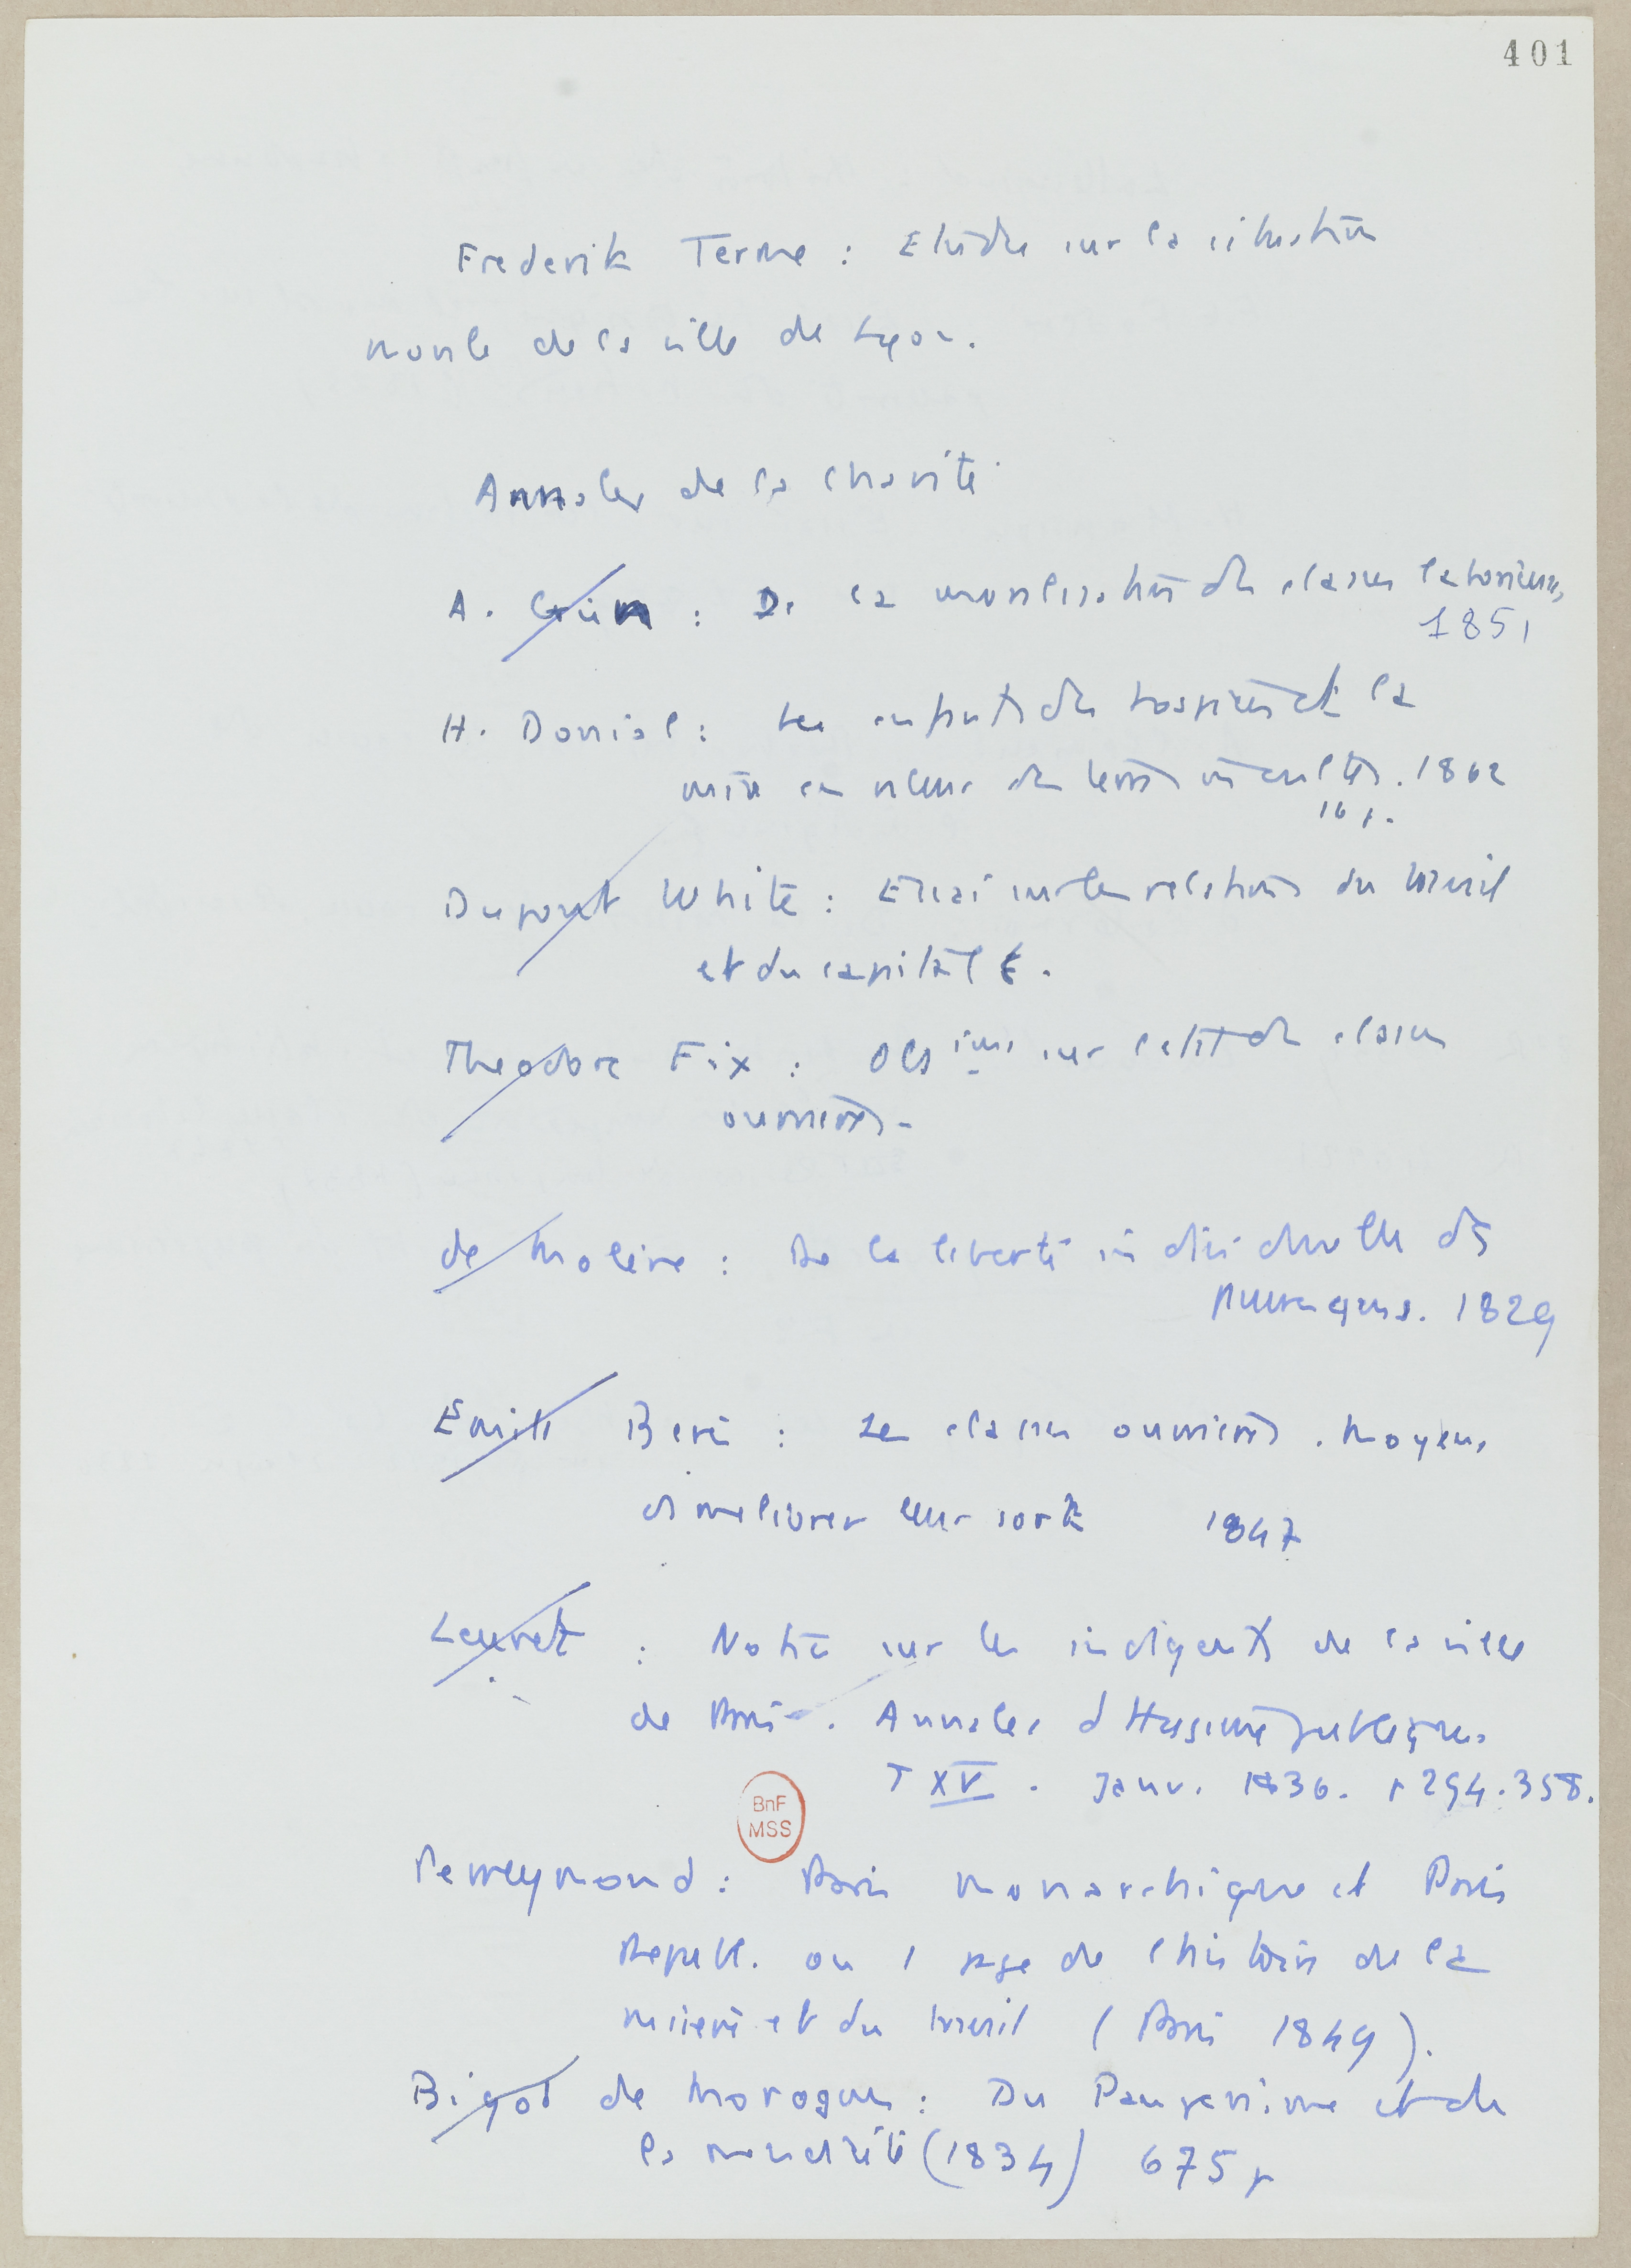 401
Frederik Terme : Etudes sur la situation
morale de la ville de Lyon.
Annales de la charité
A. Grün : De la moralisation des classes laborieuses,
1851
H. Doniol : Les enfants des hospices et la
mise en valeur des terres incultes. 1862
16 p.
Dupont White : Essai sur les relations du travail
et du capital.
Theodore Fix : Obs ions sur l'état des classes
ouvrières.
de Molène : De la liberté individuelle des
1829
Emile Beres : Les classes ouvrières. Moyens
d'ameliorer leur sort 1847
Leuret : Notice sur les indigents de la ville
de Paris. Annales d'Hygiène publique.
T XV. Janv. 1836. p 294.358.
Perreymond : Paris monarchique et Paris
Republ. ou 1 page de l'histoire de la
misère et du travail (Paris 1849).
BnF
MSS
Bigot de Morogues : Du Pauperisme et de
la mendicité (1834) 675 p